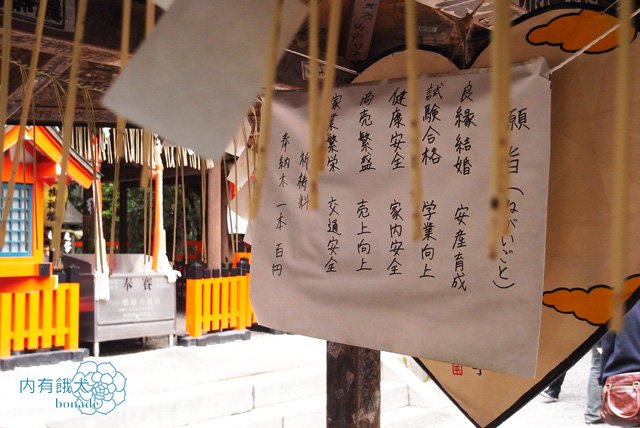 願旨(ねがいごと)
良縁結婚　安産育成
試験合格　学業向上
健康安全　家内安全
商売繁盛　売上向上
家業繁栄　交通安全
祈祷料
奉納木　一本　百円
奉賽
内有餓犬
bonade